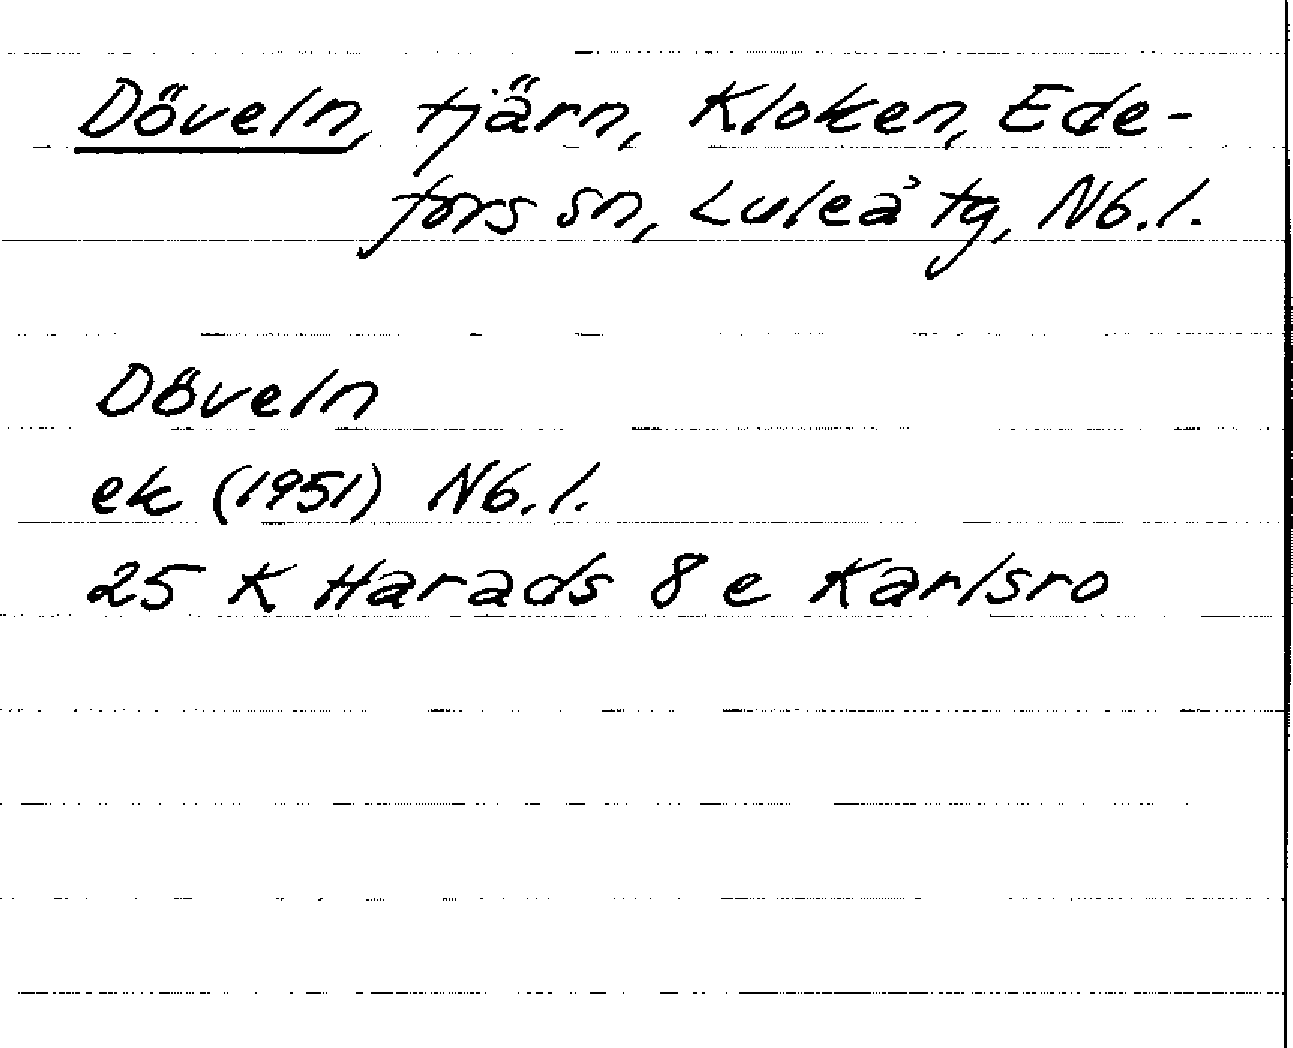 Döveln, tjärn, Kloken, Ede-
fors sn, Luleå tg, Nb.l.
Döveln
ek (1951) Nb.l.
25 K Harads 8 e Karlsro